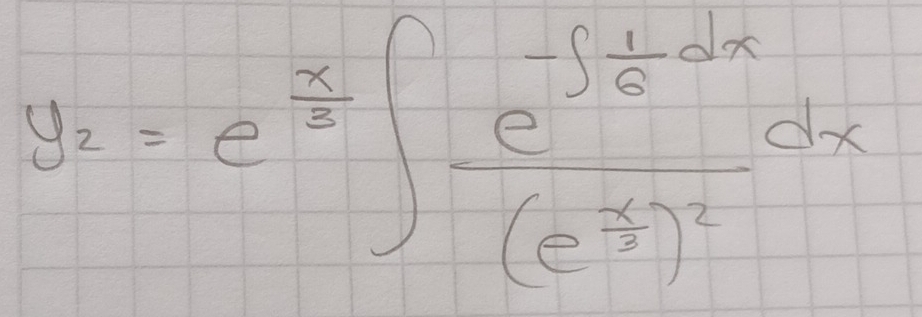 y₂ = e^(x/3) ∫ e^(-∫ 1/6 dx) / (e^(x/3))² dx